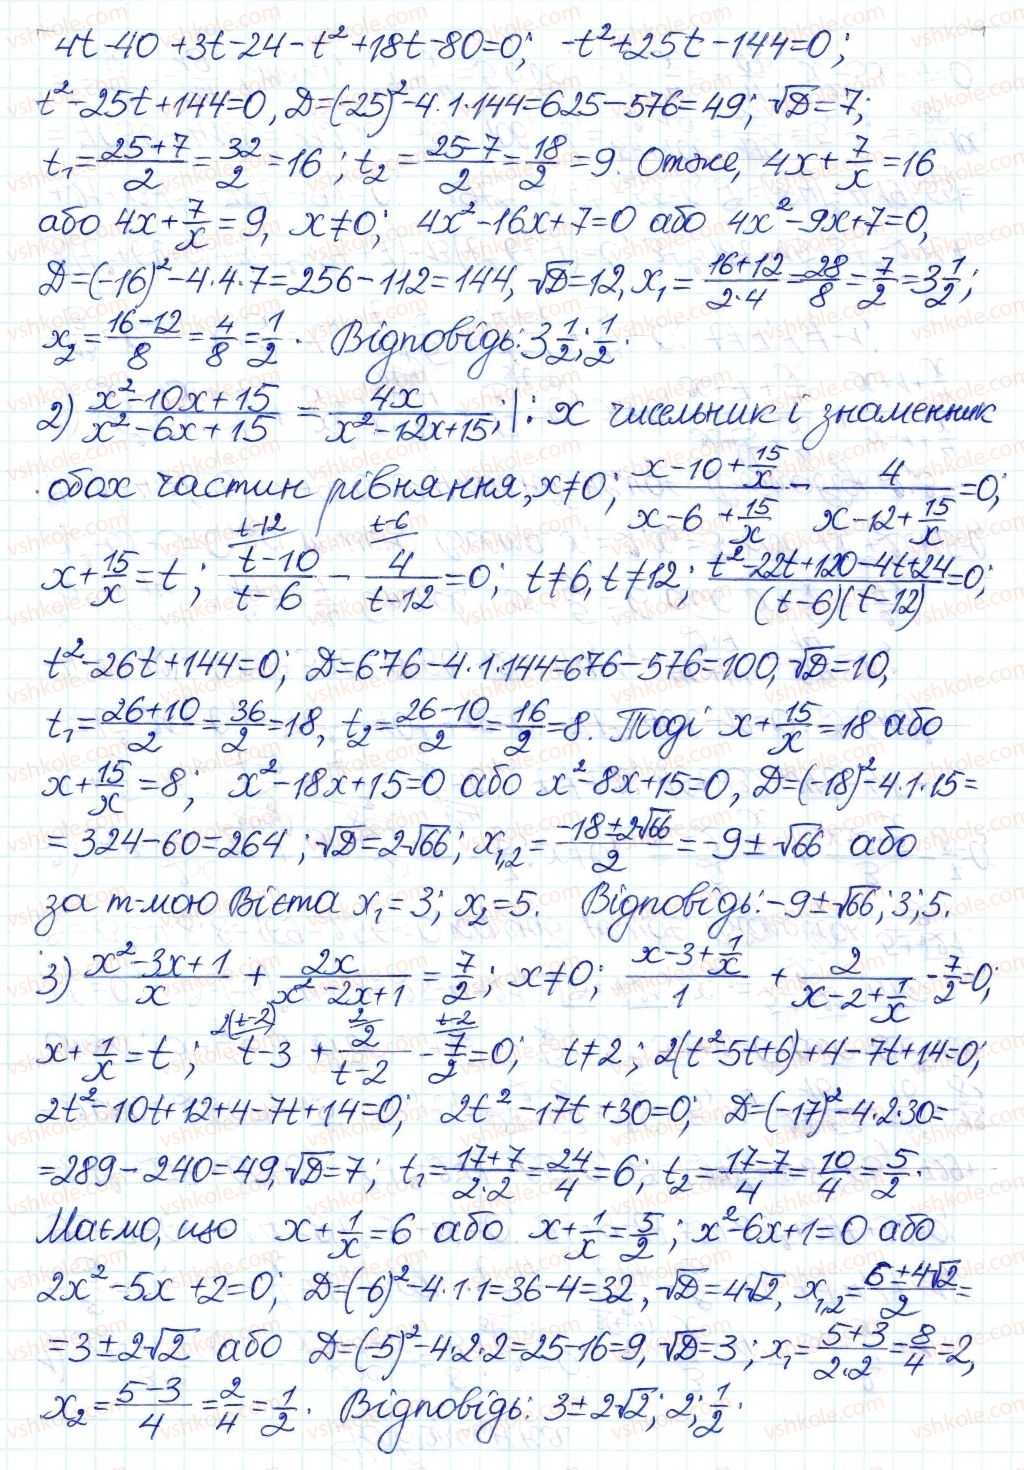 4t-40+3t-24-t²+18t-80=0; -t²+25t-144=0;
t²-25t+144=0, D=(-25)²-4·1·144=625-576=49; √D=7;
t₁=(25+7)/2=32/2=16; t₂=(25-7)/2=18/2=9. Отже, 4x+7/x=16
або 4x+7/x=9, x≠0; 4x²-16x+7=0 або 4x²-9x+7=0,
D=(-16)²-4·4·7=256-112=144, √D=12, x₁=(16+12)/(2·4)=28/8=7/2=3 1/2;
x₂=(16-12)/8=4/8=1/2. Відповідь: 3 1/2; 1/2.
2) (x²-10x+15)/(x²-6x+15)=4x/(x²-12x+15); |: x чисельник і знаменник
обох частин рівняння, x≠0; (x-10+15/x)/(x-6+15/x)-4/(x-12+15/x)=0;
x+15/x=t; (t-10)/(t-6) (t-12) - 4/(t-12) (t-6) =0; t≠6, t≠12; (t²-22t+120-4t+24)/((t-6)(t-12))=0;
t²-26t+144=0; D=676-4·1·144=676-576=100, √D=10,
t₁=(26+10)/2=36/2=18, t₂=(26-10)/2=16/2=8. Тоді x+15/x=18 або
x+15/x=8; x²-18x+15=0 або x²-8x+15=0, D=(-18)²-4·1·15=
=324-60=264; √D=2√66; x₁,₂=(-18±2√66)/2=-9±√66 або
за т-мою Вієта x₁=3; x₂=5. Відповідь: -9±√66; 3; 5.
3) (x²-3x+1)/x+2x/(x²-2x+1)=7/2; x≠0; (x-3+1/x)/1+2/(x-2+1/x)-7/2=0;
x+1/x=t; t-3 (2(t-2)) + 2/(t-2) (2) - 7/2 (t-2) =0; t≠2; 2(t²-5t+6)+4-7t+14=0;
2t²-10t+12+4-7t+14=0; 2t²-17t+30=0; D=(-17)²-4·2·30=
=289-240=49, √D=7; t₁=(17+7)/(2·2)=24/4=6; t₂=(17-7)/4=10/4=5/2.
Маємо, що x+1/x=6 або x+1/x=5/2; x²-6x+1=0 або
2x²-5x+2=0; D=(-6)²-4·1·1=36-4=32, √D=4√2, x₁,₂=(6±4√2)/2=
=3±2√2 або D=(-5)²-4·2·2=25-16=9, √D=3; x₁=(5+3)/(2·2)=8/4=2,
x₂=(5-3)/4=2/4=1/2. Відповідь: 3±2√2; 2; 1/2.